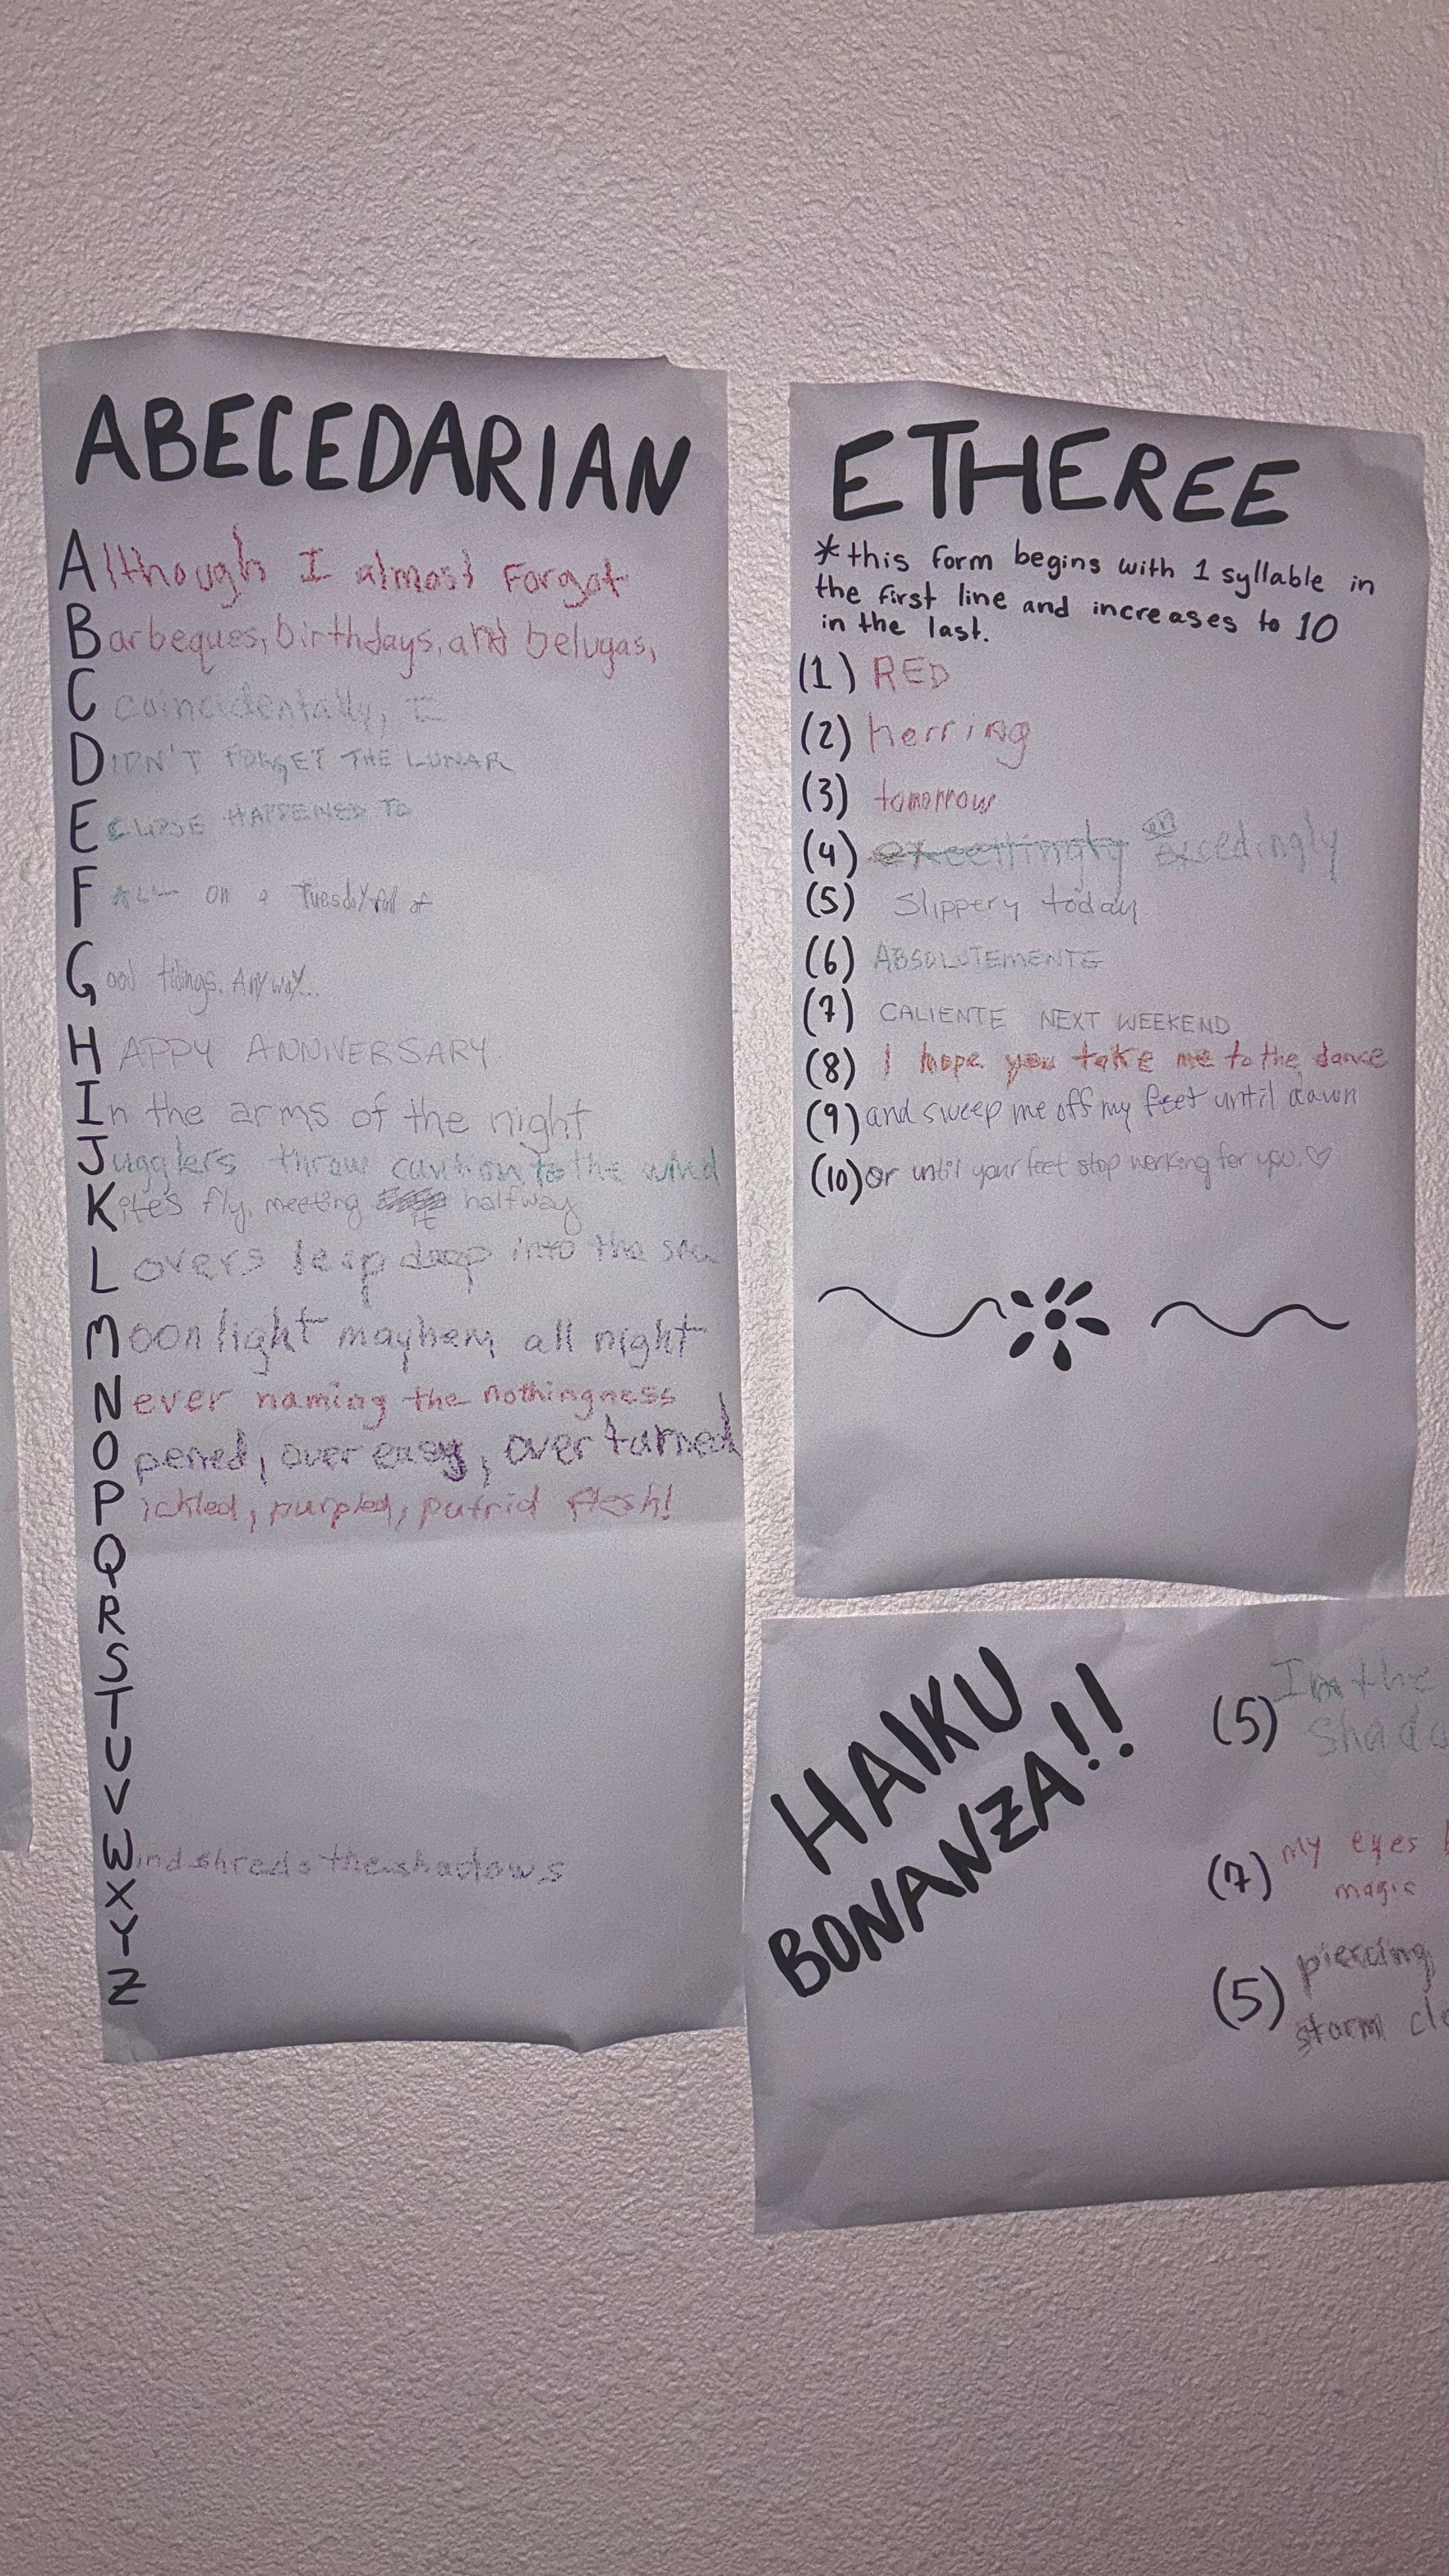 ABECEDARIAN
Although I almost Forgot
Barbeques, birthdays, and belugas,
C coincidentally, I
DIDN'T FORGET THE LUNAR
ECLIPSE HAPPENED TO
FALL on a Tuesday full of
Good tidings. Anyway...
HAPPY ANNIVERSARY
In the arms of the night
Jugglers throw caution to the wind
Kites fly, meeting it halfway
Lovers leap deep into the sea
Moonlight mayhem all night
Never naming the nothingness
Opened, over easy, over turned
Pickled, purpled, putrid flesh!
Q
R
S
T
U
V
Wind shreds the shadows
X
Y
Z
ETHEREE
*this form begins with 1 syllable in
the first line and increases to 10
in the last.
(1) RED
(2) herring
(3) tomorrow
(4) excedingly
(5) Slippery today
(6) ABSOLUTEMENTE
(7) CALIENTE NEXT WEEKEND
(8) I hope you take me to the dance
(9) and sweep me off my feet until dawn
(10) or until your feet stop working for you. ♡
HAIKU
BONANZA!!
(5) In the
(7) my eyes
magic
(5) piercing
storm